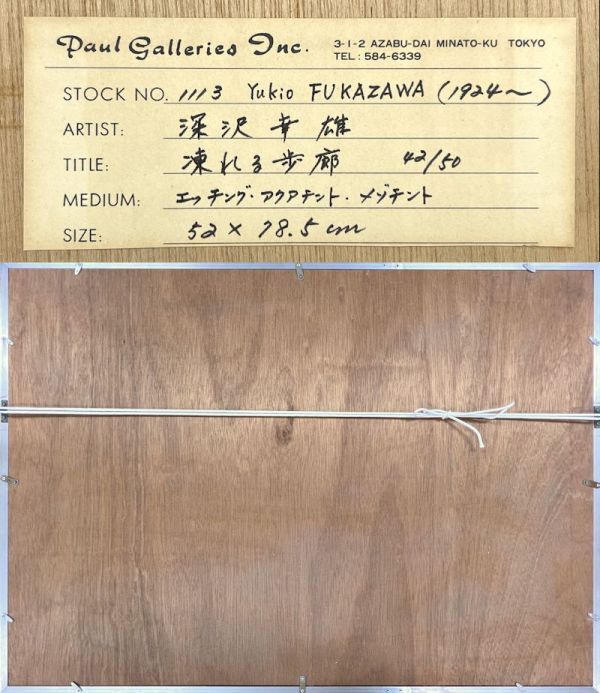 Paul Galleries Inc. 3-1-2 AZABU-DAI MINATO-KU TOKYO
TEL: 584-6339
STOCK NO. 1113 Yukio FUKAZAWA (1924~)
ARTIST: 深沢幸雄
TITLE: 凍れる歩廊 42/50
MEDIUM: エッチング・アクアチント・メゾチント
SIZE: 52 × 78.5 cm